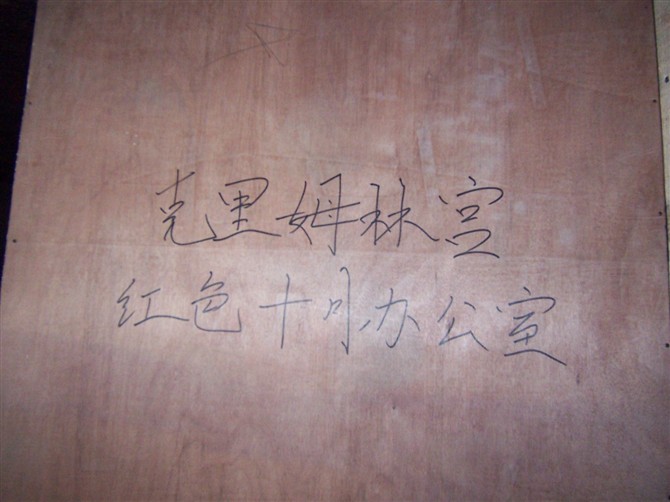 克里姆林宫
红色十月办公室